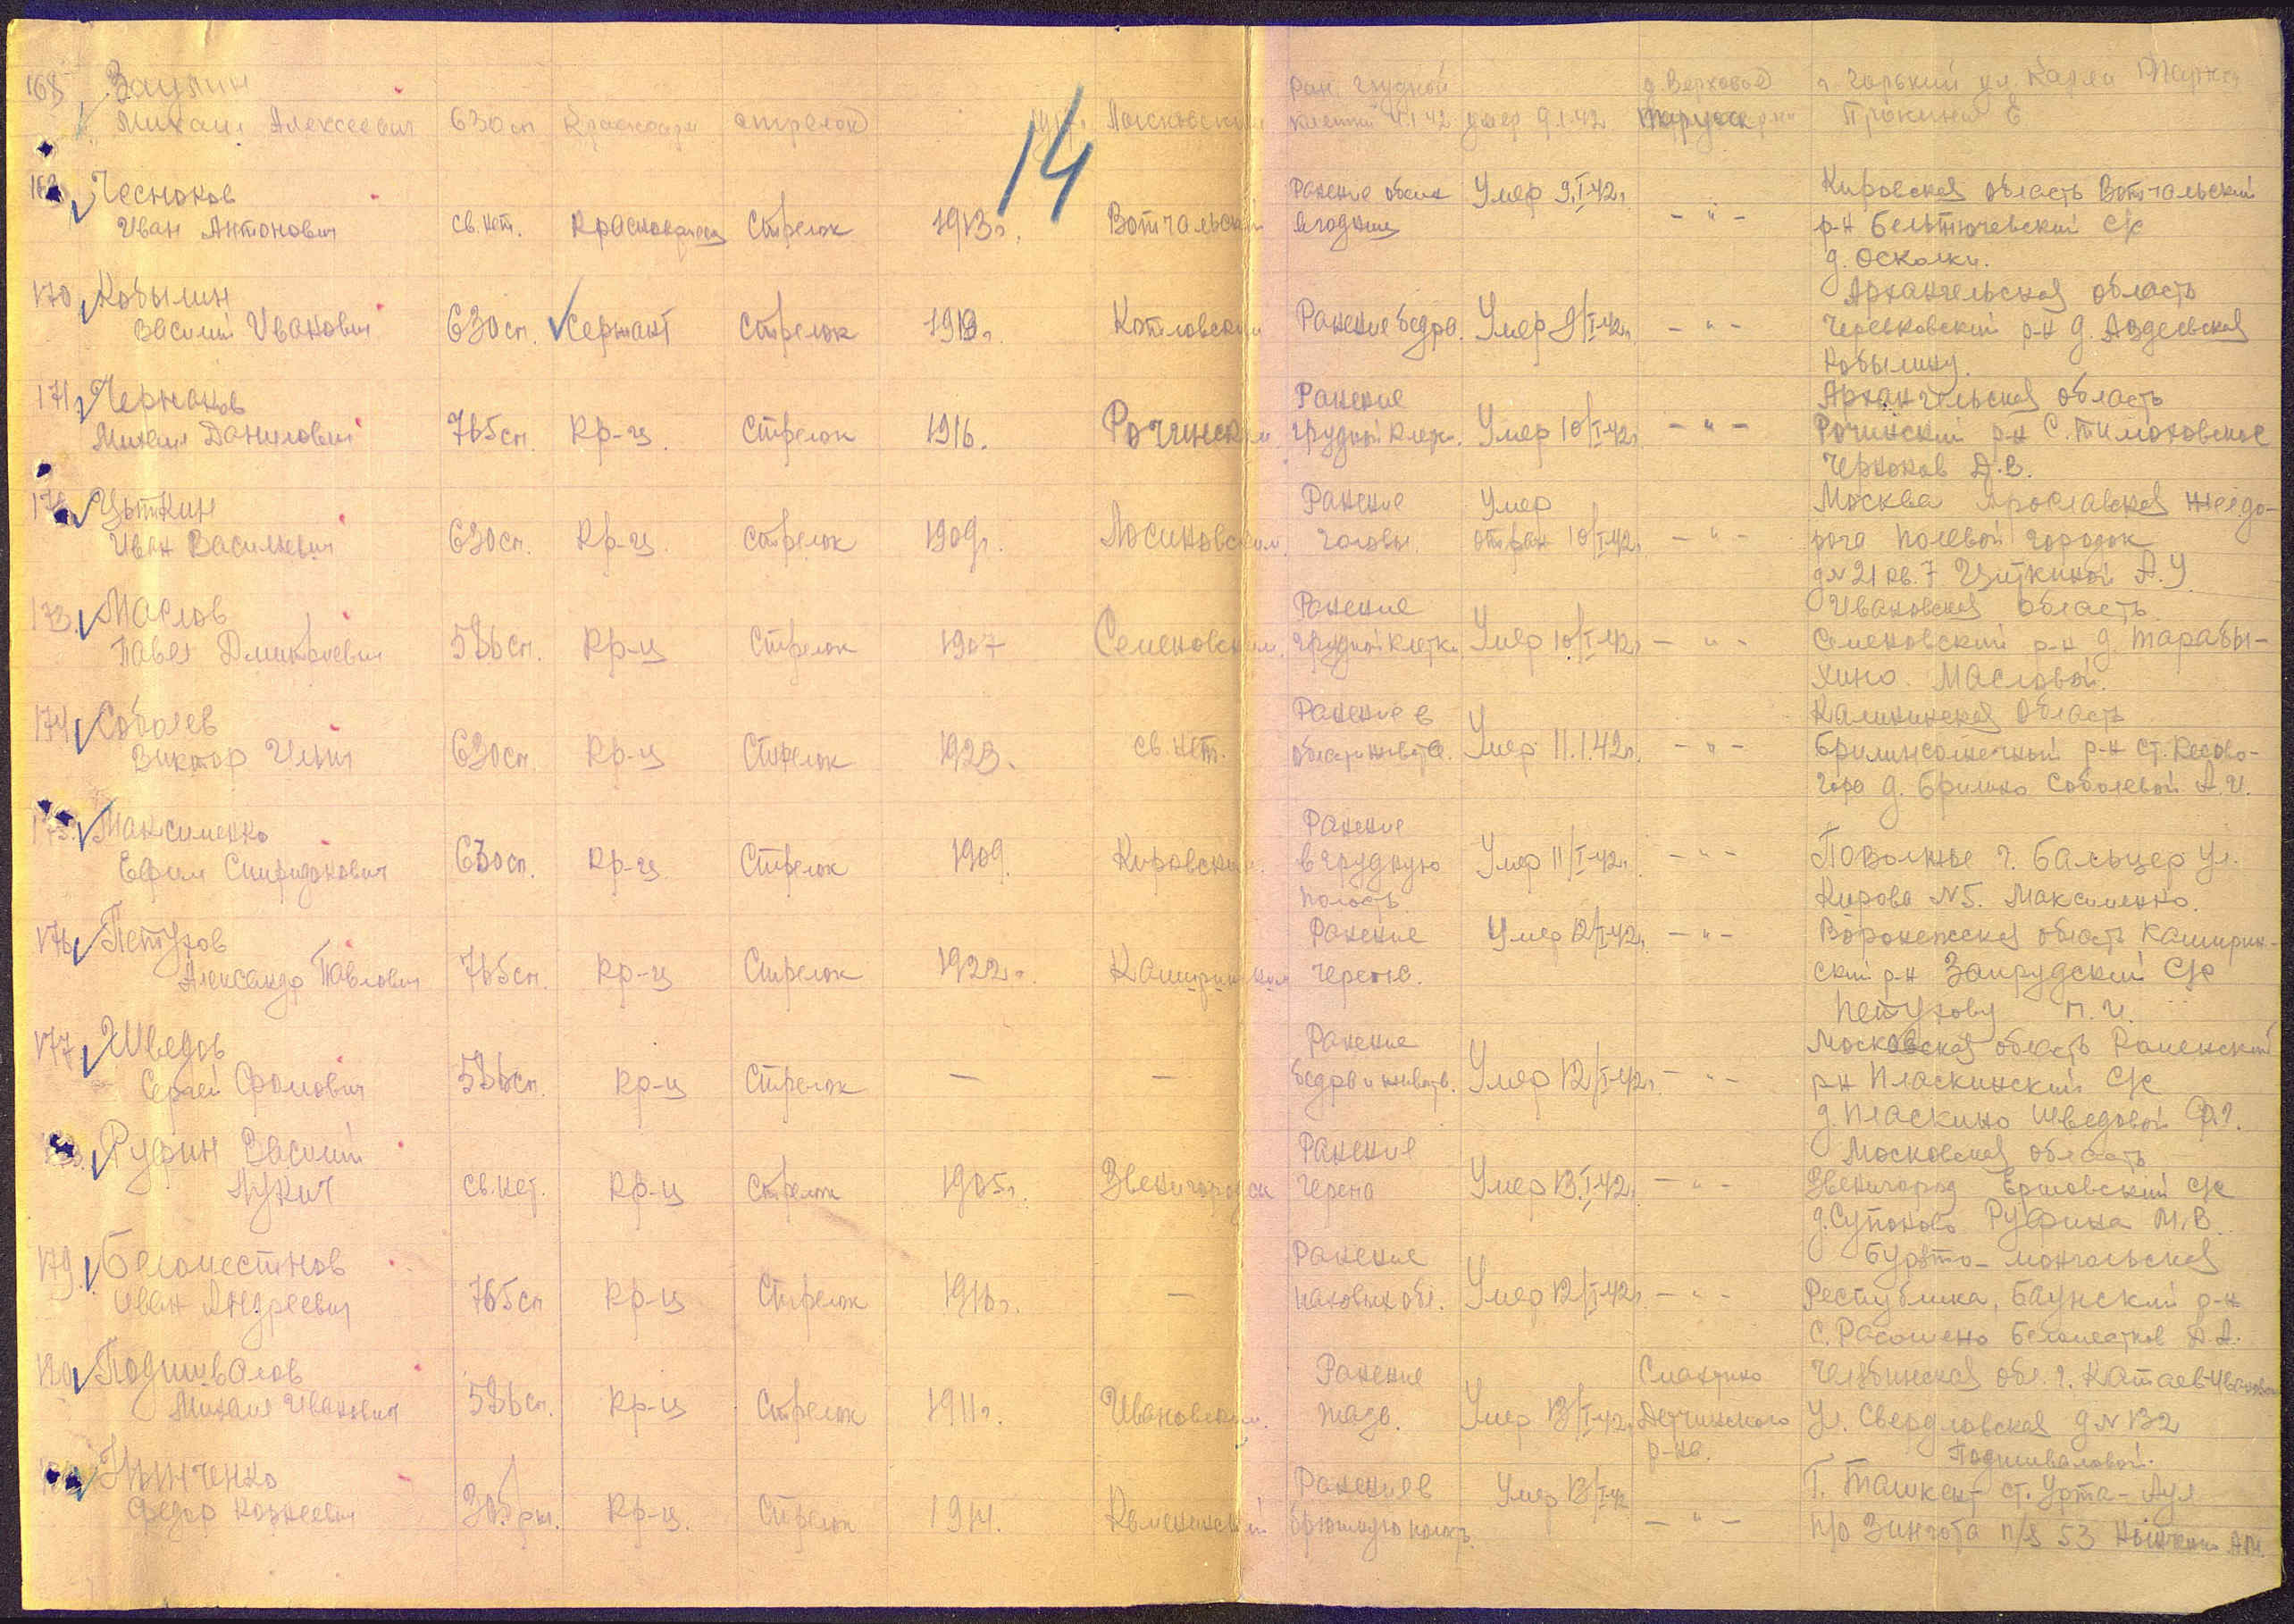 14
168 Заулин
Михаил Алексеевич 630 сп стрелок
Ран. грудной клетки умер 9.1.42
г. Горький ул. Карла Маркса
169 Чесноков
Иван Антонович св. нет. Красноармеец Стрелок 1913г. Вотчальский
Ранение обеих ягодиц Умер 9.I.42г. - " -
Кировская область Вотчальский
р-н Бельтюгевский с/с
д. Осколки.
170 Кобылин
Василий Иванович 630сп. Сержант Стрелок 1919г. Котловский
Ранение бедра. Умер 9/I-42г. - " -
Архангельская область
Черевковский р-н д. Авдеевская
Кобылину.
171 Чернаков
Михаил Данилович 765сп. Кр-ц. Стрелок 1916.
Ранение
грудной клетк. Умер 10/I-42г. - " -
Архангельская область
р-н С. Тимоховское
Чернаков Д.В.
172 Цыткин
Иван Васильевич 630сп. Кр-ц. Стрелок 1909г. Лосиновским.
Ранение головы. Умер от ран 10/I-42г. - " -
Москва Ярославская желдо-
рога полевой городок
д№21 кв. 7 Цыткиной А.У.
173. Маслов
Павел Дмитриевич 586сп. Кр-ц Стрелок 1907 Семеновским.
Ранение
грудной клетк. Умер 10/I-42г. - " -
Ивановская область
Семеновский р-н д. Тарабы-
хино. Масловой.
174 Соболев
Виктор Ильич 630сп. Кр-ц Стрелок 1923. св. нет.
Ранение в
области живота. Умер 11.1.42г. - " -
Калининская область
р-н ст. Кесово-
гора д. Бримно Соболевой А.И.
175. Максименко
Ефим Спиридонович 630сп. Кр-ц Стрелок 1909. Кировским.
Ранение
в грудную
полость. Умер 11/I-42г. - " -
Поволжье г. Бальцер ул.
Кирова №5. Максименко.
176 Петухов
Александр Павлович 765сп. Кр-ц Стрелок 1922г. Каширинским
Ранение
черепа. Умер 12/I-42г. - " -
Воронежская область Каширин-
ский р-н Запрудский с/с
Петухову П.И.
177. Шведов
Сергей Фролович 586сп. Кр-ц Стрелок — —
Ранение
бедра и живота. Умер 12/I-42г. - " -
Московская область Раменский
р-н Пласкинский с/с
д. Пласкино Шведовой
178. Руфин Василий
Лукич св. нет. Кр-ц Стрелок 1905г. Звенигородск
Ранение
черепа Умер 13.I.42г. - " -
Московская область
Звенигород Ершовский с/с
д. Супоново Руфина М.В.
179. Беломестнов
Иван Андреевич 765сп Кр-ц Стрелок 1916г. —
Ранение
паховых обл. Умер 12/I-42г. - " -
Бурято-монгольская
Республика, Баунский р-н
с. Беломестнов А.А.
180 Подшивалов
Михаил Иванович 586сп. Кр-ц Стрелок 1911г. Ивановским.
Ранение
таза. Умер 13/I-42г.
Детчинского
р-на.
Челябинская обл. г. Катаев-Ивановск
ул. Свердловская д№132
Подшиваловой.
181 Нынченко
Федор Кр-ц. Стрелок 1914. Каменский
Ранение в
брюшную полость. Умер 13/I-42 - " -
г. Ташкент ст. Урта-Аул
п/о Зингота п/я 53 Нынченко